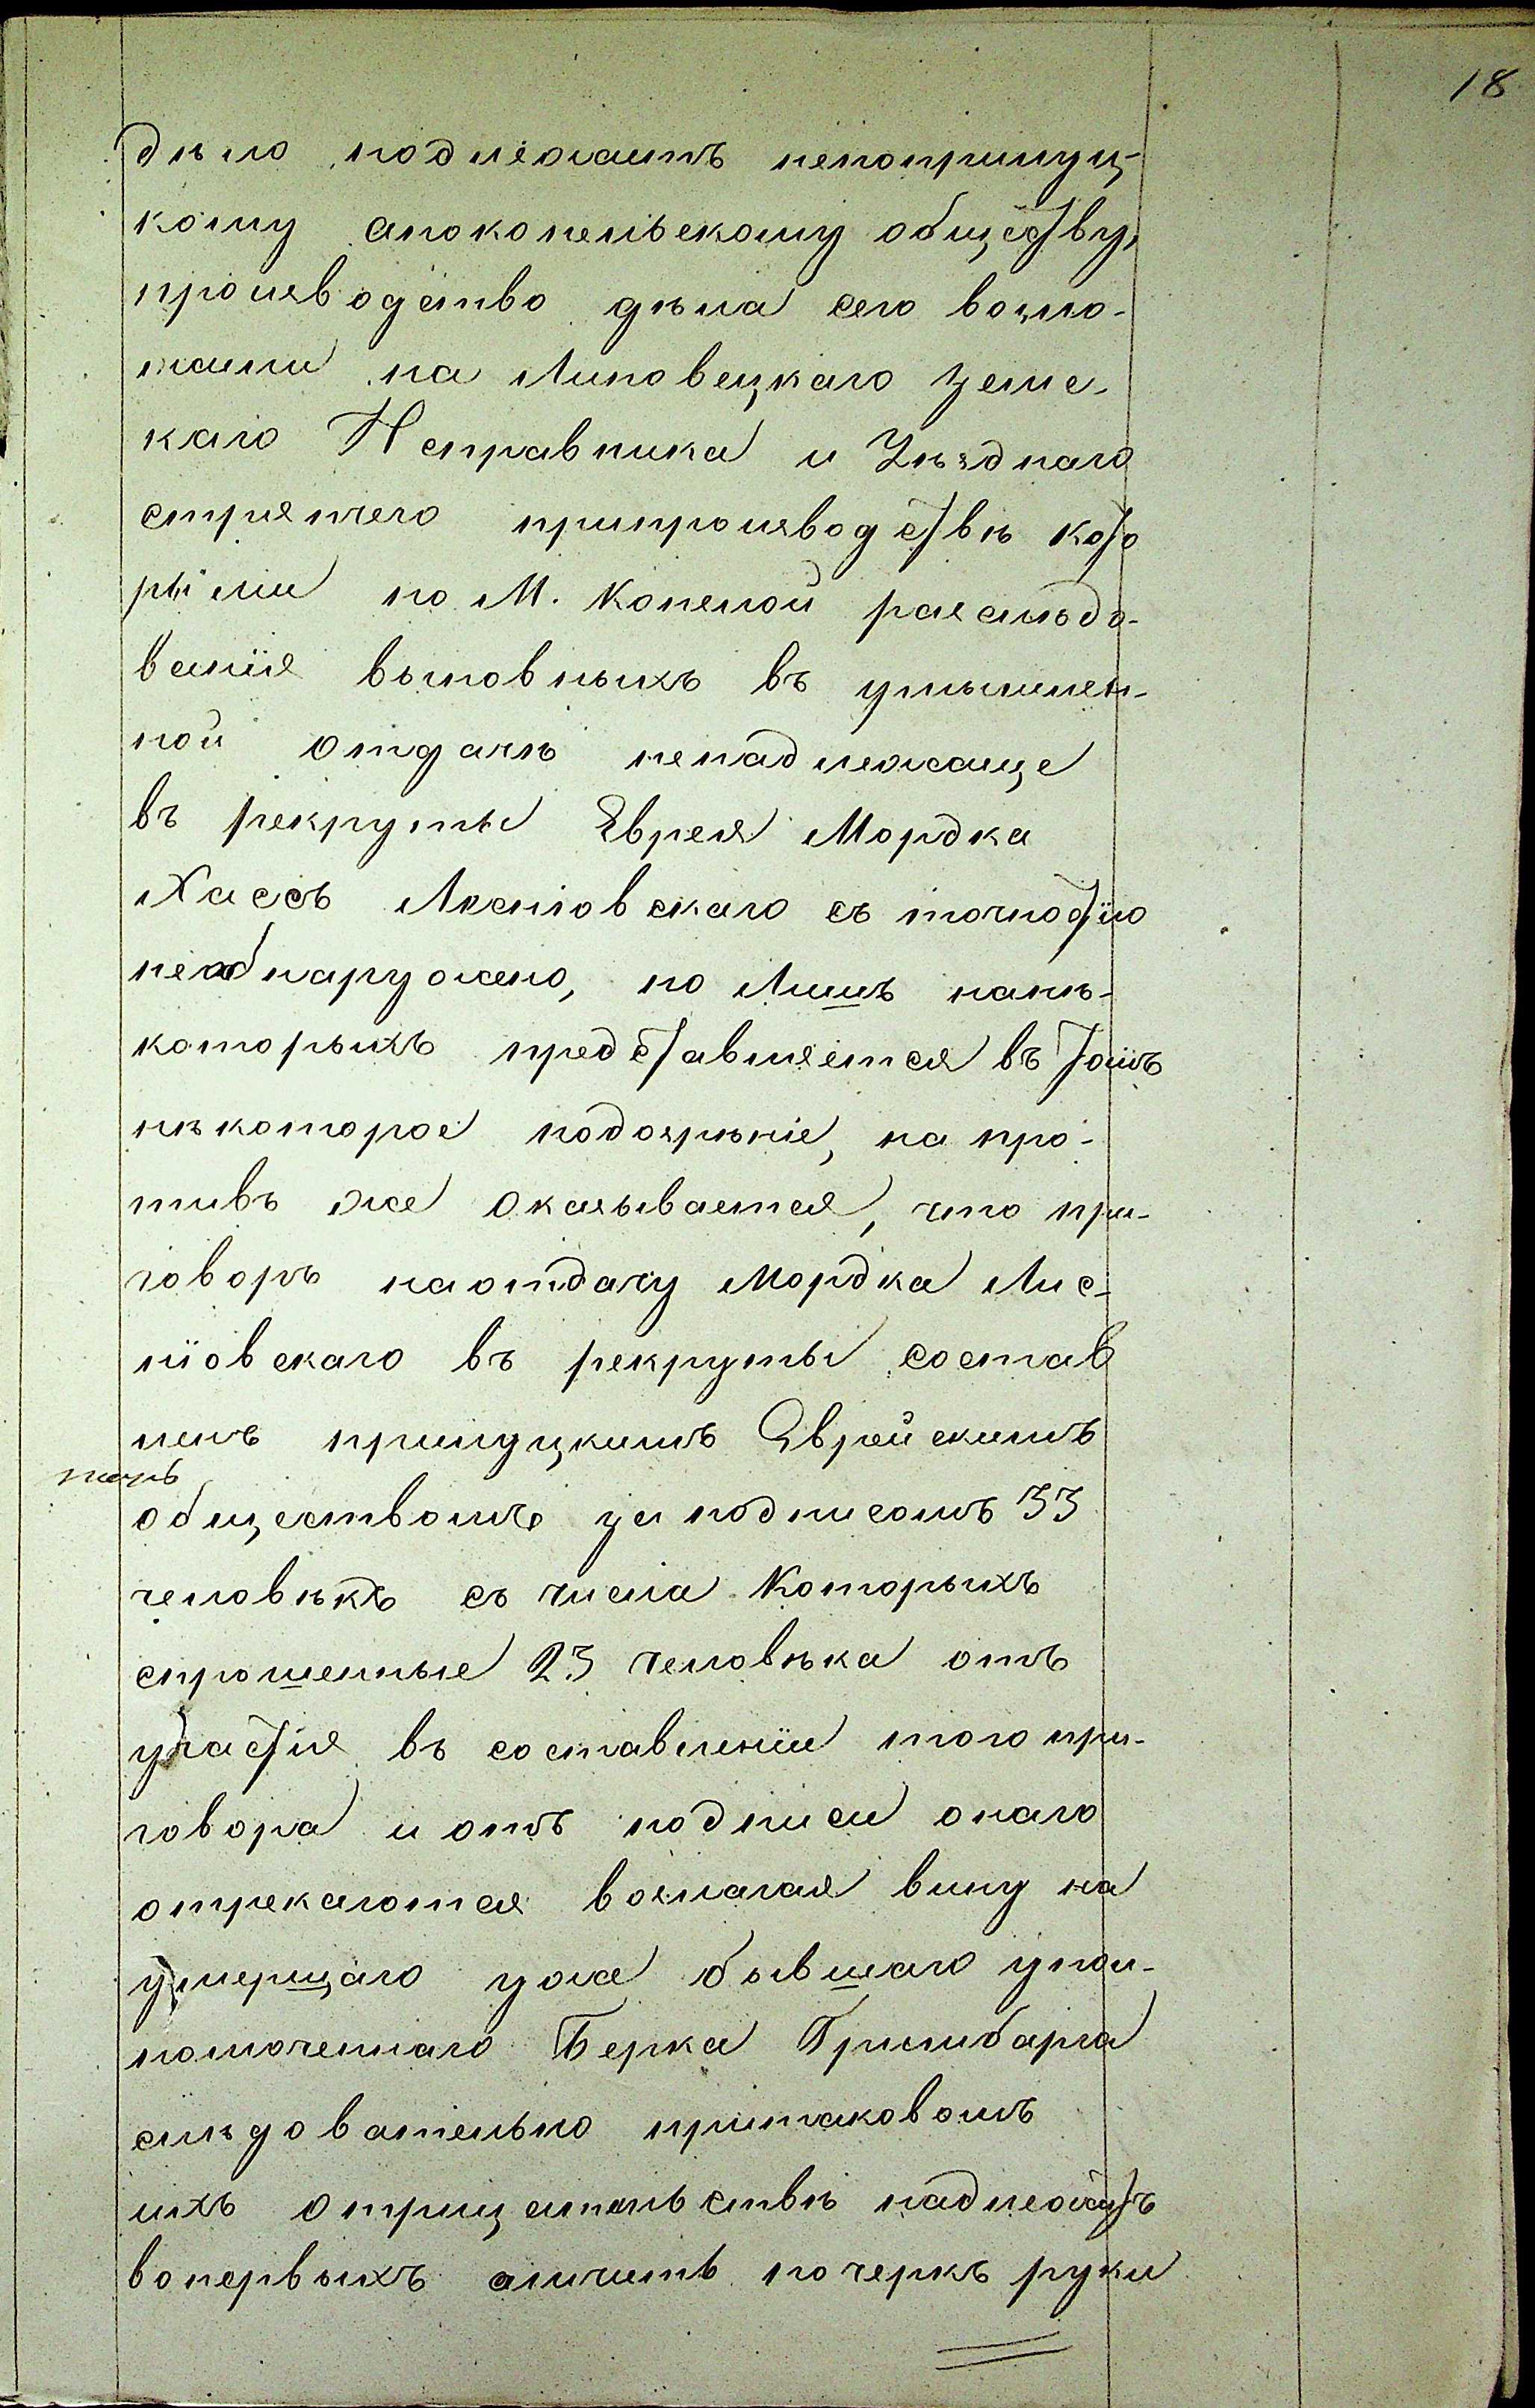 18
дѣло подлежитъ непоприлуц-
кому апокопельскому обществу,
производство дѣла сего возло-
жили на Липовецкаго Земс-
каго Исправника и Уѣзднаго
стряпчего припроизводствѣ кото
рыми по М. Копелой разслѣдо-
ванія выновныхъ въ умышлен-
ной отдачѣ ненадлежаще
въ рекруты Еврея Мордка
Хассъ Лісніовскаго съ точностію
необнаружено, но Лишъ нанѣ-
которыхъ представляется въ томъ
нѣкоторое подозрѣніе, на про-
тивъ же оказывается, что при-
говоръ наотдачу Мордка Лис-
ніовскаго въ рекруты состав
ленъ прилуцкимъ Еврейскимъ
обществомъ за подписомъ 33
человѣкъ съ числа Которыхъ
спрошенные 23 человѣка отъ
участія въ составленіи того при-
говора и отъ подписи онаго
отрекаются возлагая вину на
умершаго уже бывшаго упол-
номоченнаго Берка Гринбарга
слѣдовательно притаковомъ
ихъ отрицательствѣ надлежитъ
вопервыхъ сличить почеркъ руки